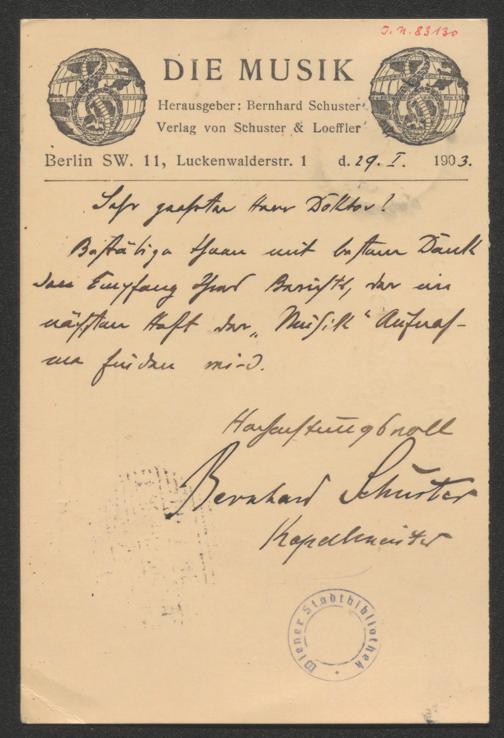 J.N. 83130
DIE MUSIK
Herausgeber: Bernhard Schuster
Verlag von Schuster & Loeffler
Berlin SW. 11, Luckenwalderstr. 1 d. 29. I. 1903.
Sehr geehrter Herr Doktor!
Bestätige Ihnen mit bestem Dank
den Empfang Ihres Berichts, der im
nächsten Heft der „Musik“ Aufnah-
me finden wird.
Hochachtungsvoll
Bernhard Schuster
Kapellmeister
Wiener Stadtbibliothek